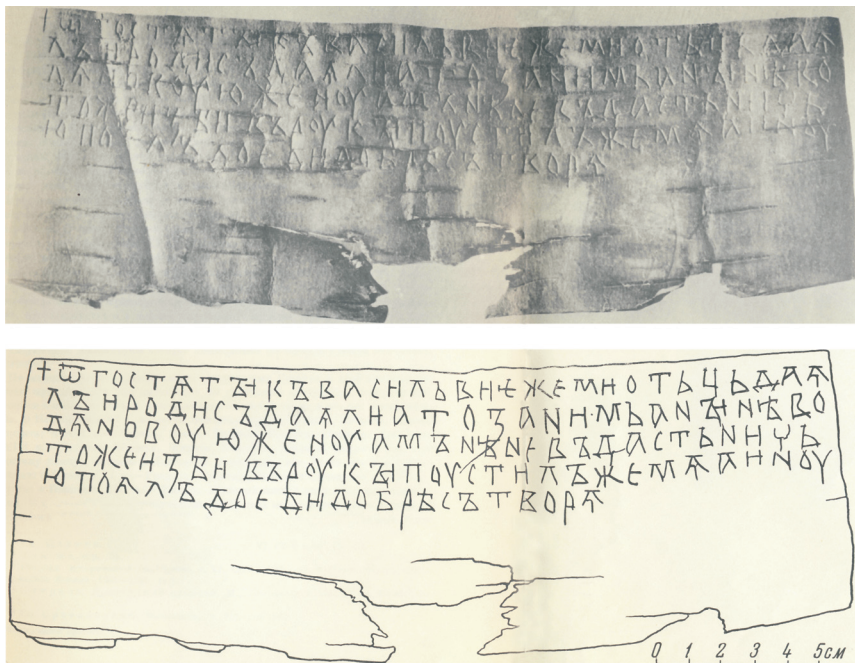 + ѿ гостѧтꙑ къ васильви ѥже ми отьць даѧ
лъ и роди съдаѧли а то за нимь а нꙑнѣ во
дѧ новоую женоу а мънѣ не въдасть ничь
то же избивъ роукꙑ поустилъ же мѧ а иноу
ю поѧлъ доеди добрѣ сътворѧ
0 1 2 3 4 5см